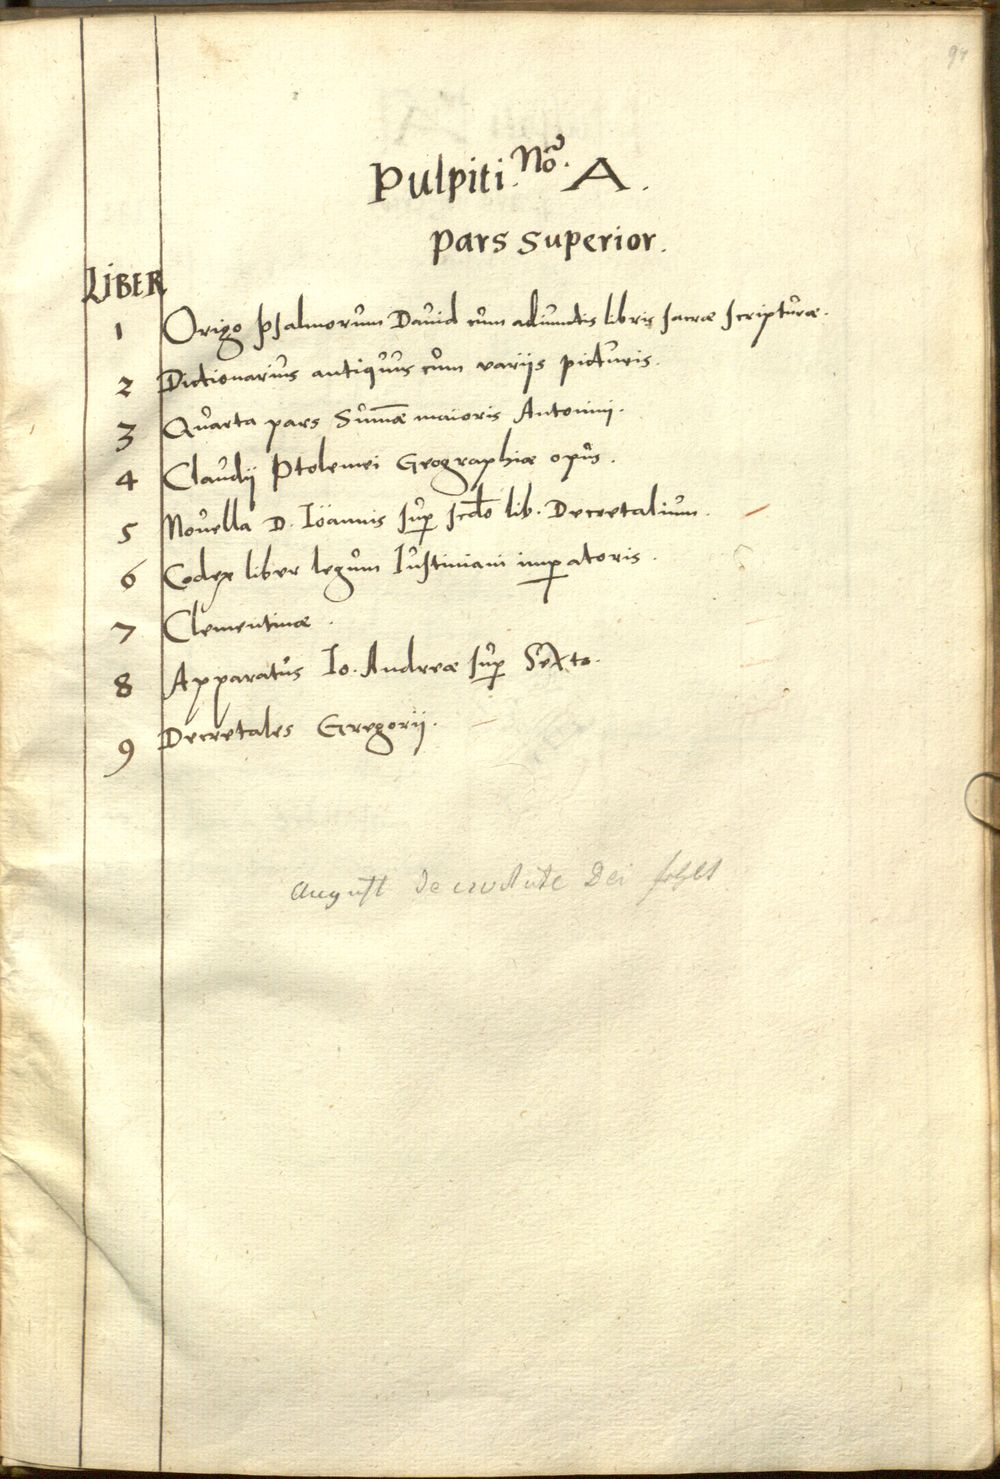 94
Pulpiti. No. A.
pars Superior.
LIBER
1 Origo Psalmorum Dauid cum adiunctis libris sacræ scripturæ.
2 Dictionarius antiquus cum variis picturis.
3 Quarta pars Sum̄æ maioris Antonini.
4 Claudij Ptolemei Geographiæ opus.
5 Nouella D. Ioannis sup scdo lib. Decretalium.
6 Codex liber legum Iustiniani impatoris.
7 Clementinæ.
8 Apparatus Io. Andreæ sup Sexto.
9 Decretales Gregorij.
August de ciuitate Dei